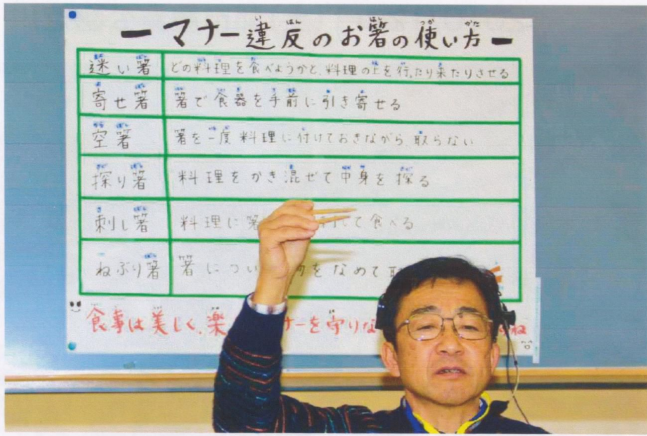 ーマナー違反のお箸の使い方ー
迷い箸 どの料理を食べようかと、料理の上を行ったり来たりさせる
寄せ箸 箸で食器を手前に引き寄せる
空箸 箸を一度料理に付けておきながら取らない
探り箸 料理をかき混ぜて中身を探る
刺し箸 料理に箸 して食べる
ねぶり箸 箸につい をなめて
食事は美しく、楽 ナーを守りな ね